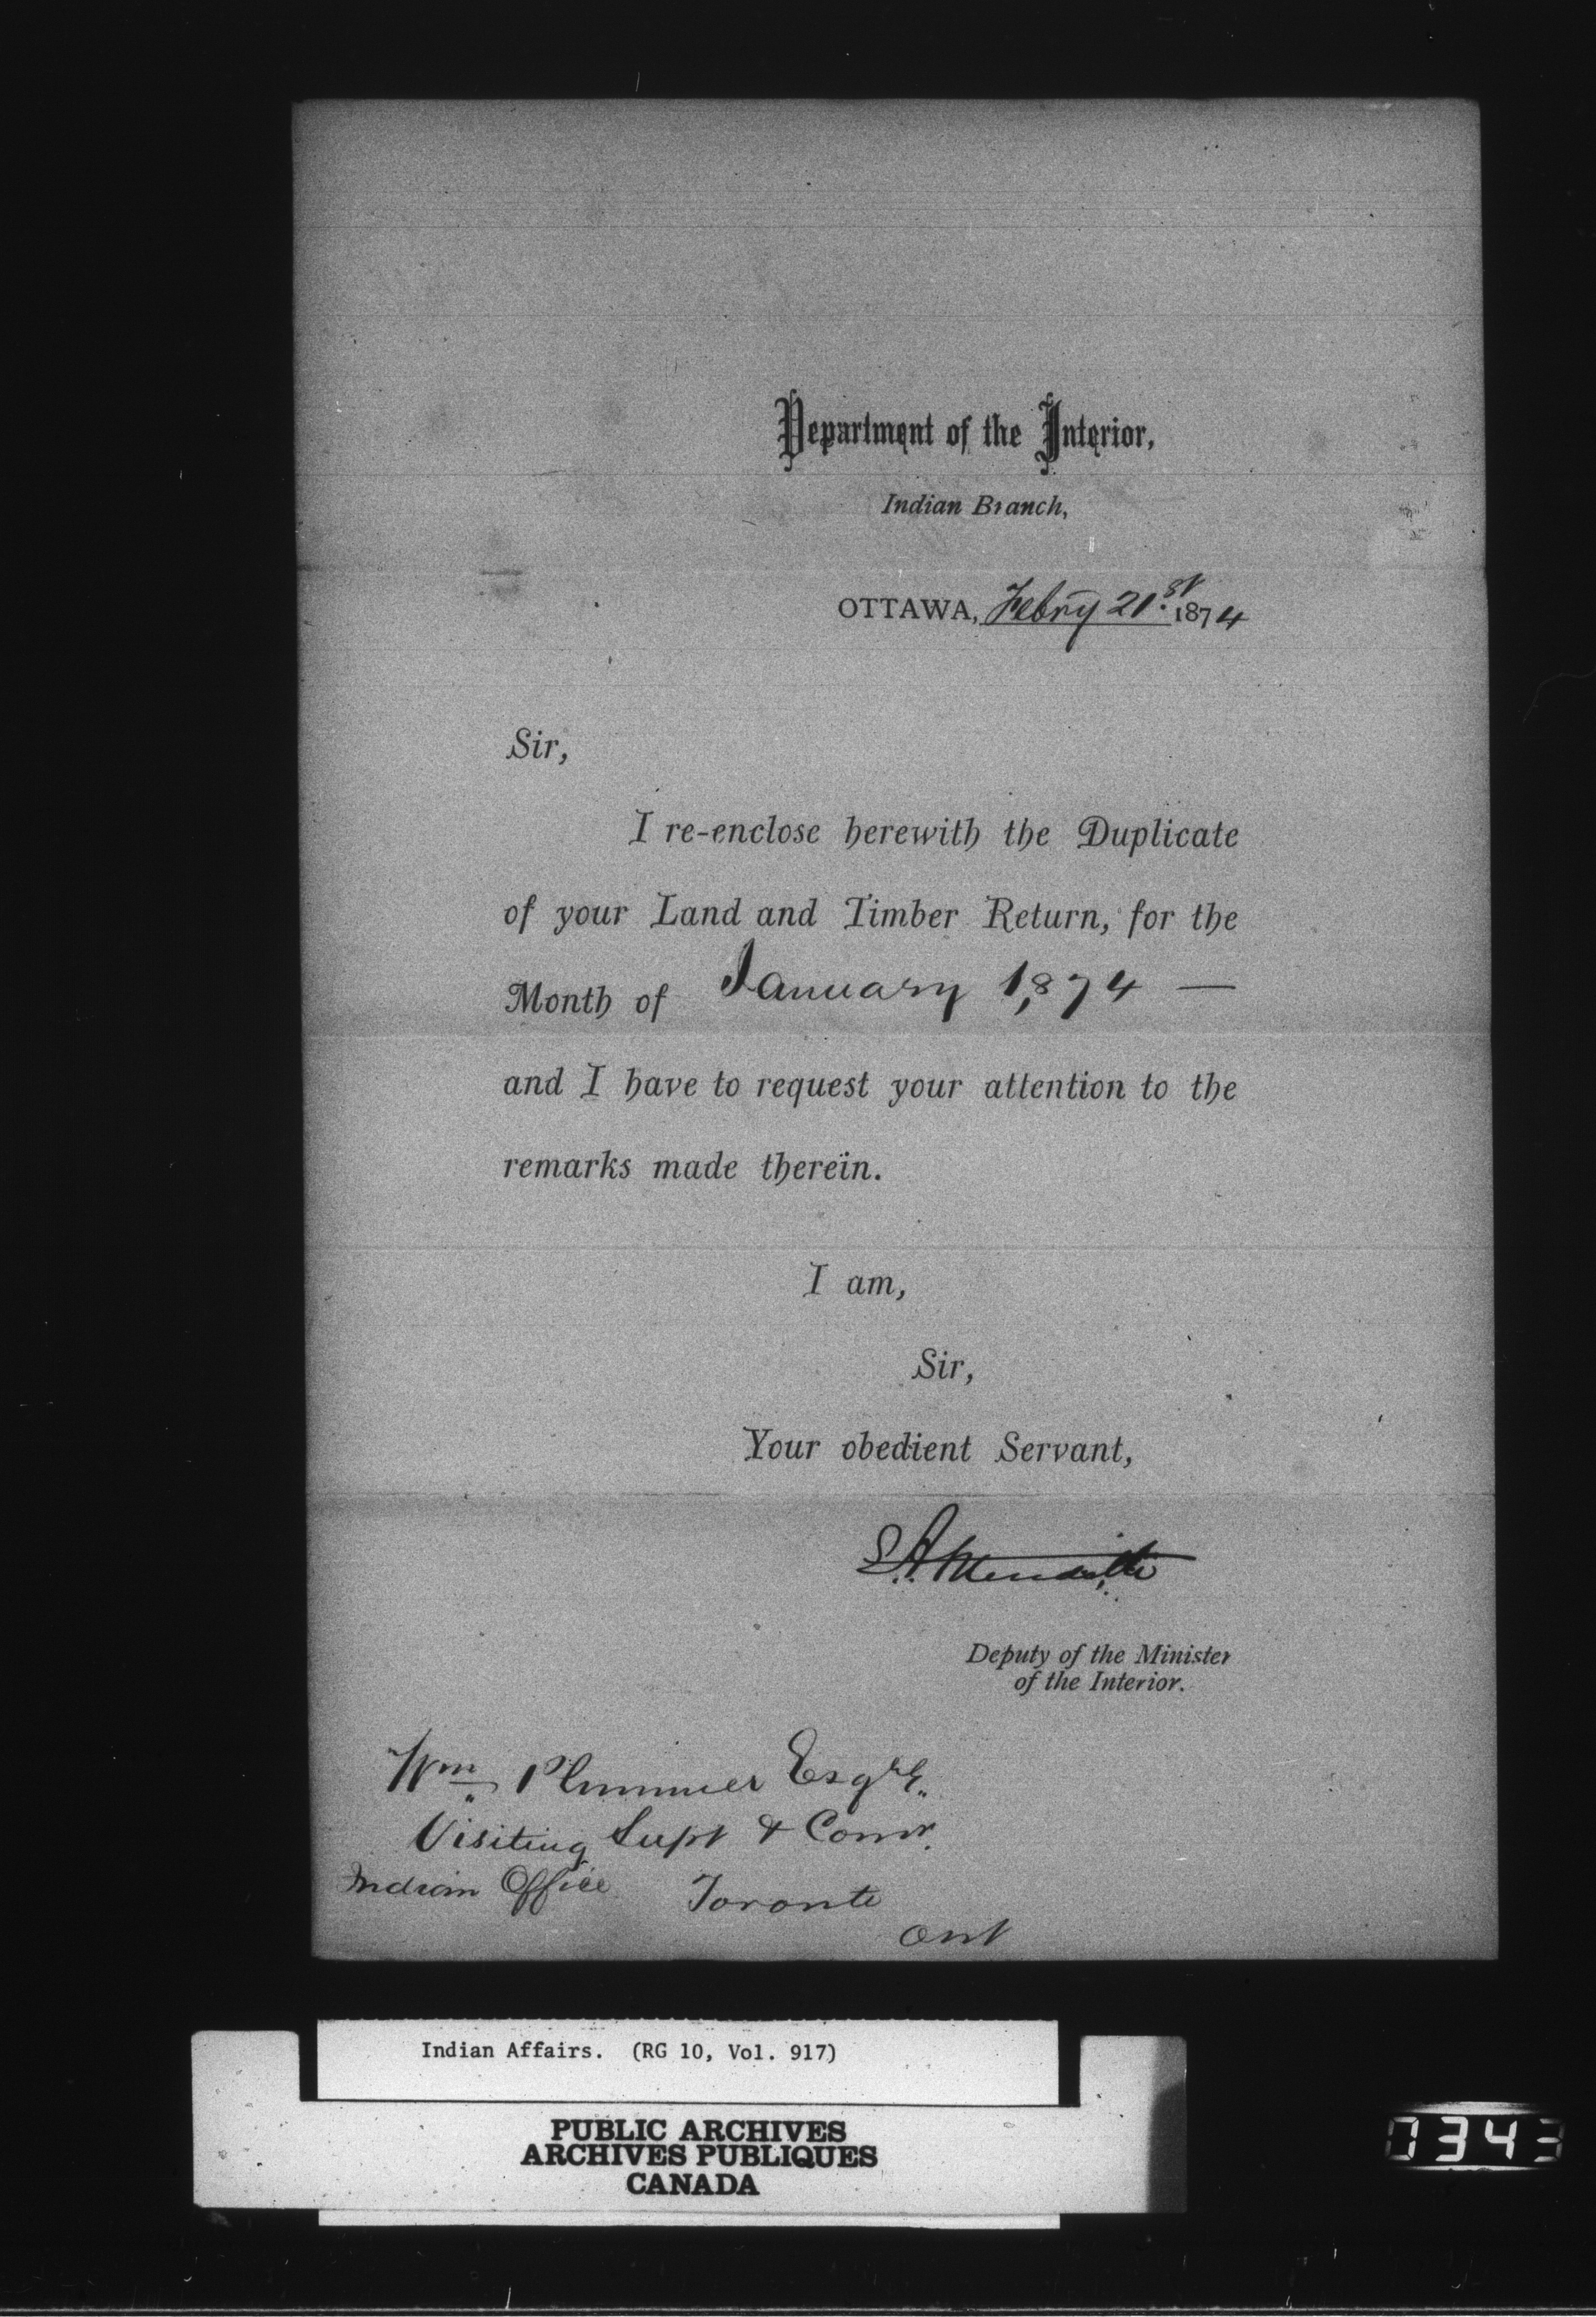 Department of the Interior,
Indian Branch,
OTTAWA, Febry 21st 1874
Sir,
I re-enclose herewith the Duplicate
of your Land and Timber Return, for the
Month of January 1874 —
and I have to request your attention to the
remarks made therein.
I am,
Sir,
Your obedient Servant,
S.A. Meredith
Deputy of the Minister
of the Interior.
Wm Plummer Esqre.
Visiting Supt & Comr.
Indian Office Toronto
Ont
Indian Affairs. (RG 10, Vol. 917)
PUBLIC ARCHIVES
ARCHIVES PUBLIQUES
CANADA
0343